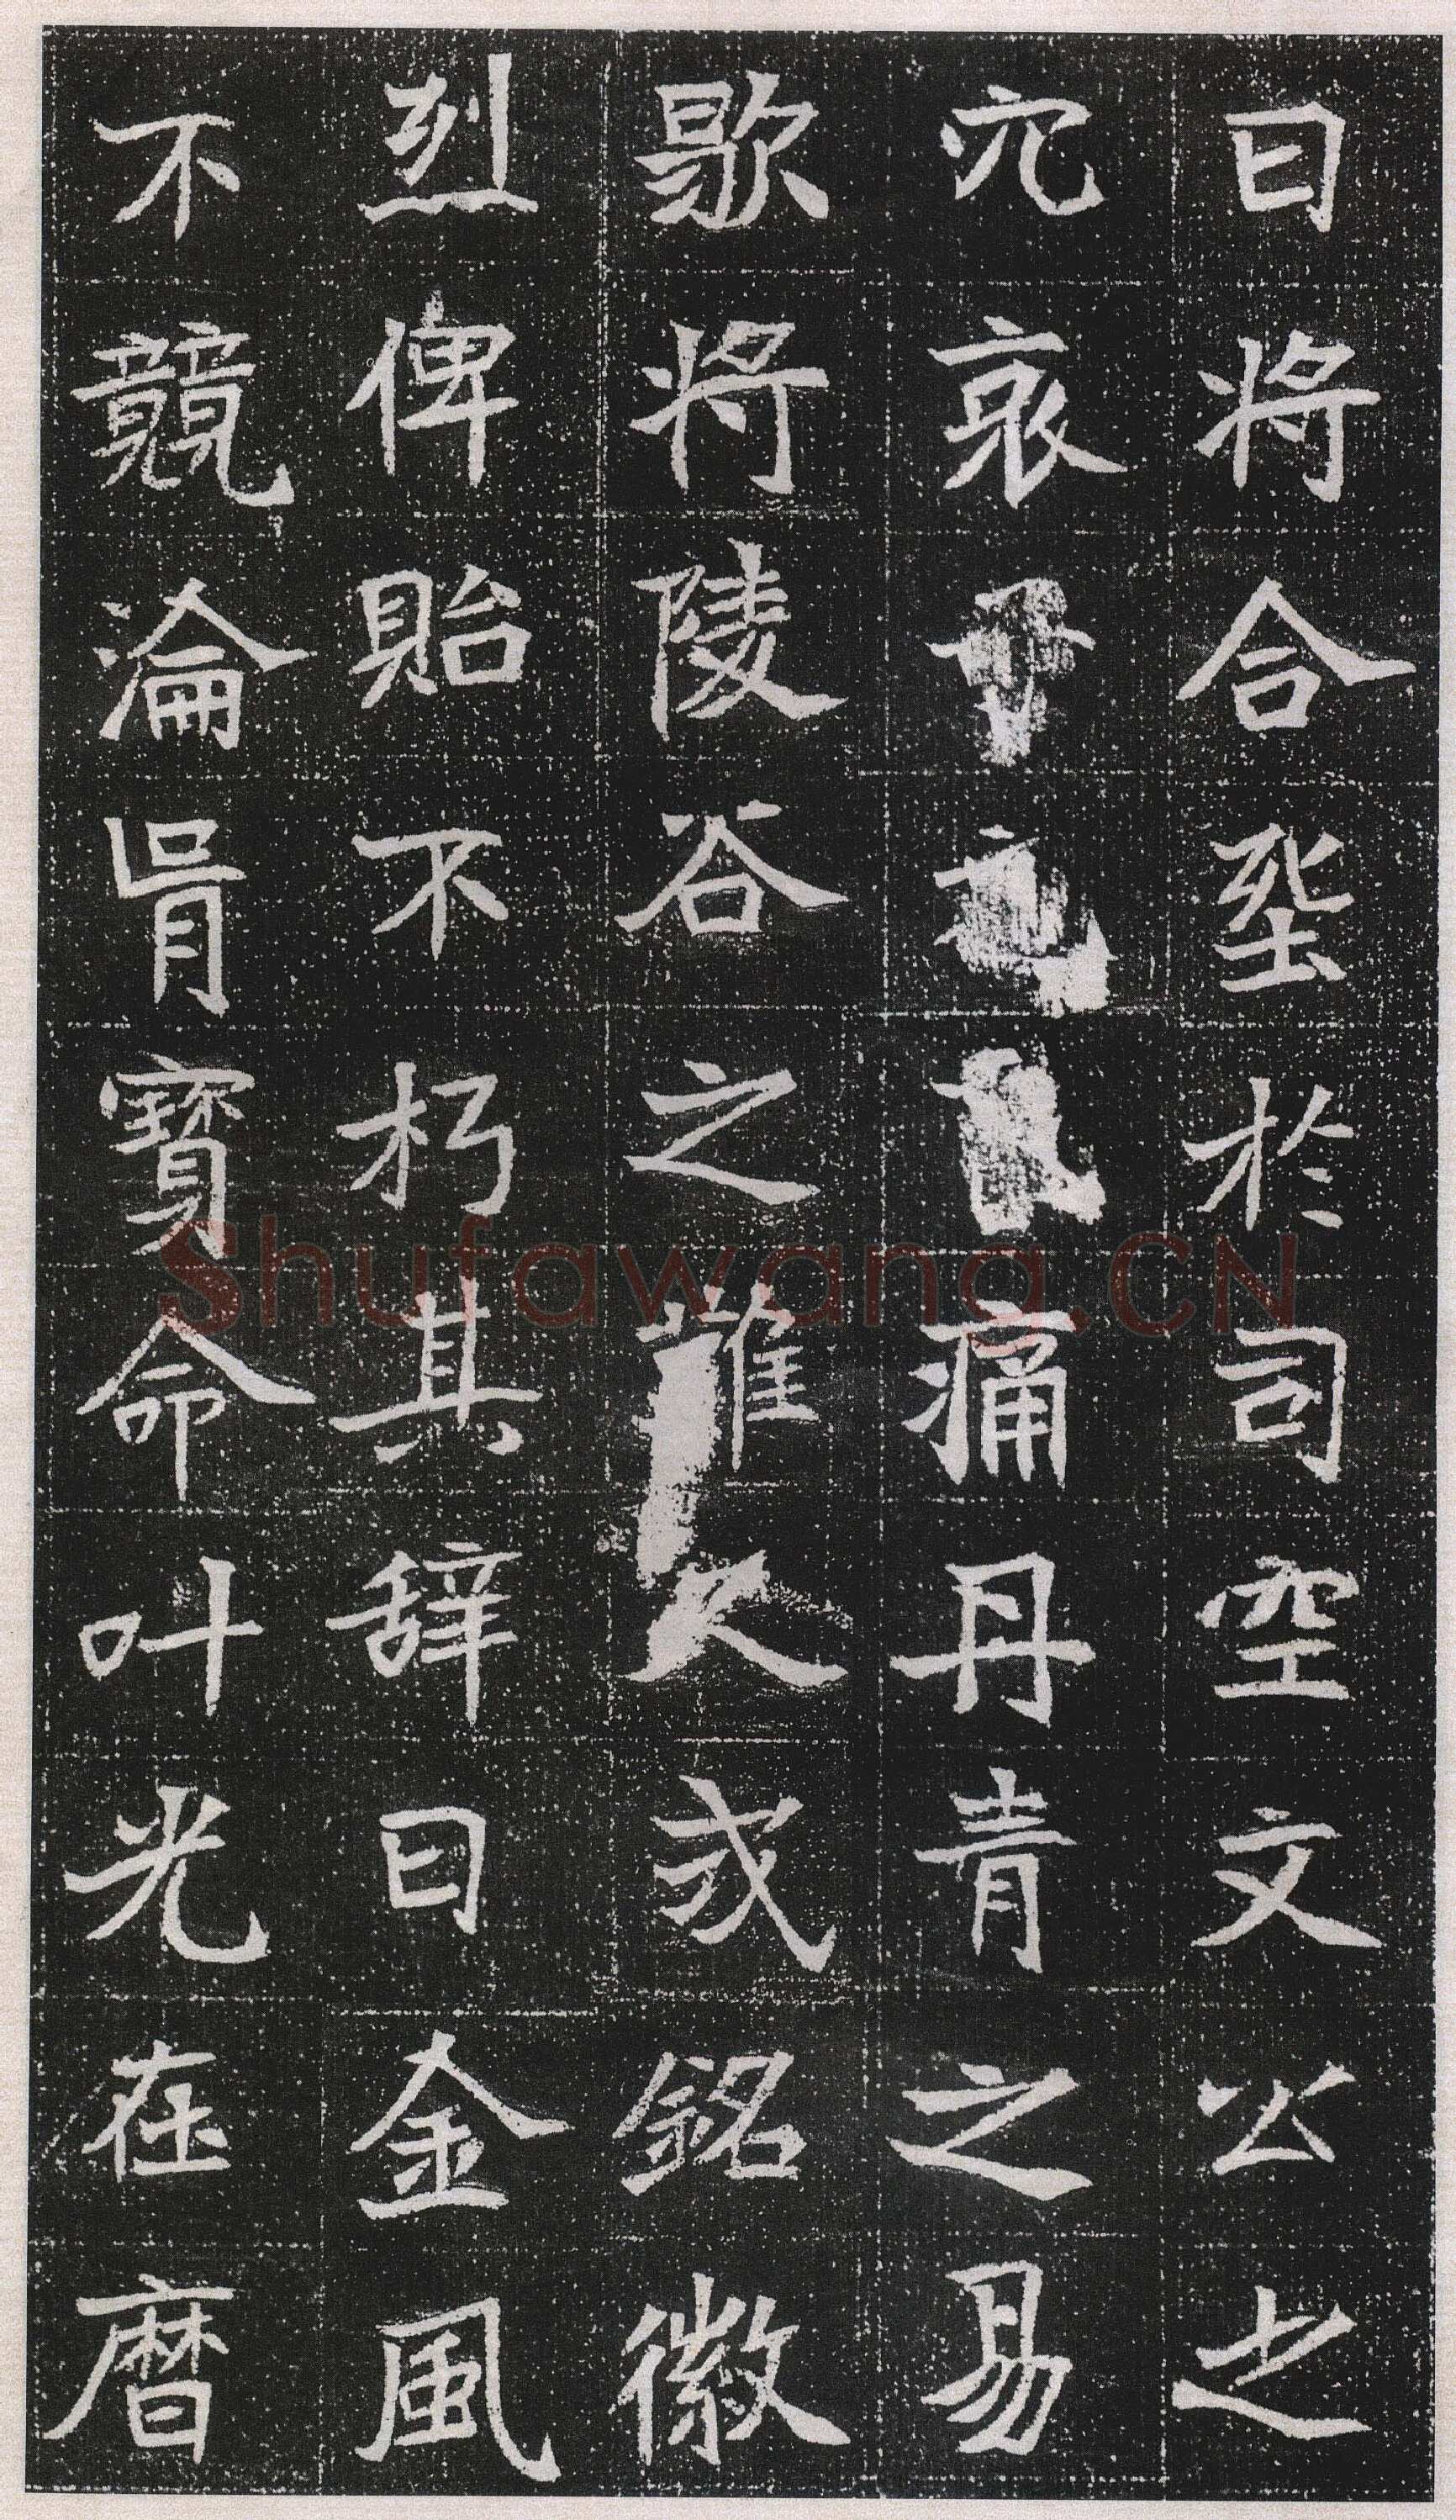 日将合葬於司空文公之
穴哀痛丹青之易
歇将陵谷之難久式銘徽
烈俾貽不朽其辞曰金風
不競淪胥寶命叶光在暦
Shufawang.CN